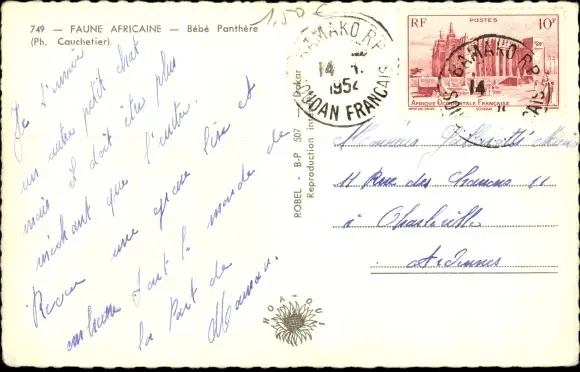 749 - FAUNE AFRICAINE - Bébé Panthère
(Ph. Cauchetier)
1,50 €
Je t'envoie
un autre petit chat
mais il doit être plus
méchant que l'autre
Reçois une grosse bise et
embrasse tout le monde de
la part de
Maman.
ROBEL - B.P 507 - Dakar
Reproduction
HOA-QUI
BAMAKO R.P.
14
1952
SOUDAN FRANCAIS
RF POSTES 10F
AFRIQUE OCCIDENTALE FRANÇAISE
SOUDAN
BAMAKO R.P.
14
Monsieur
11 Rue des 11
à Charleville
Ardennes